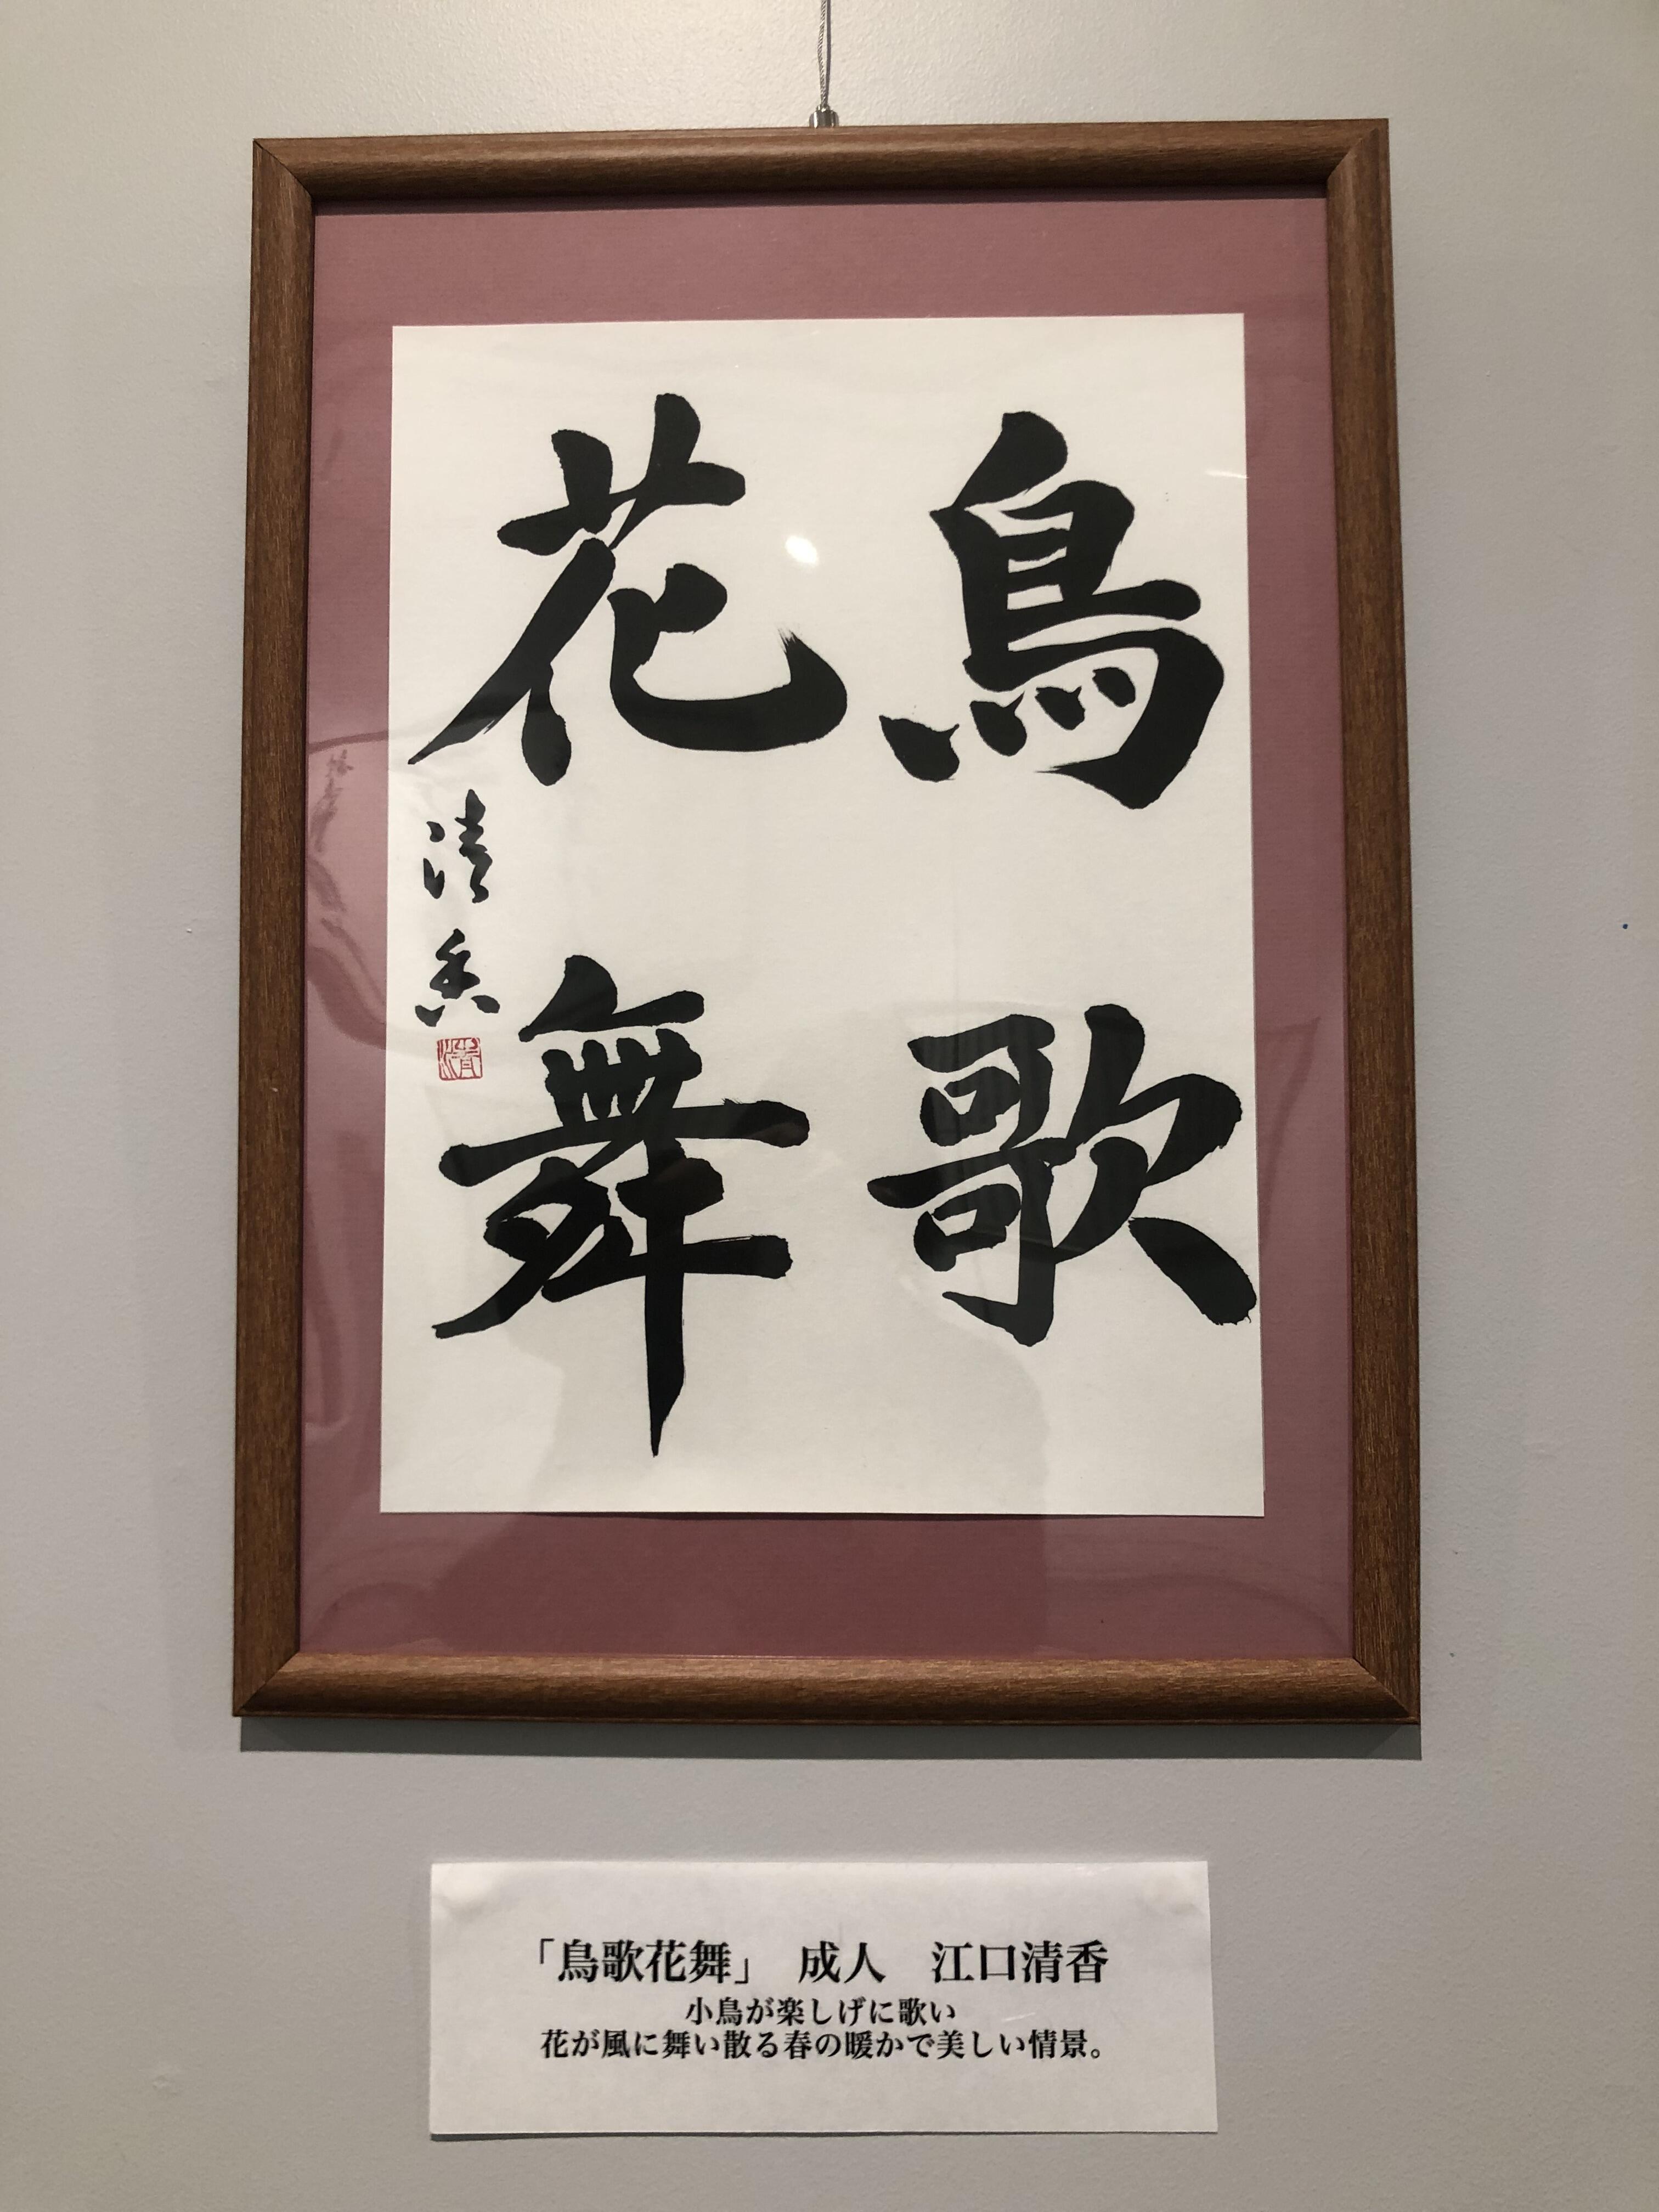 鳥歌
花舞
清香
清
「鳥歌花舞」 成人 江口清香
小鳥が楽しげに歌い
花が風に舞い散る春の暖かで美しい情景。